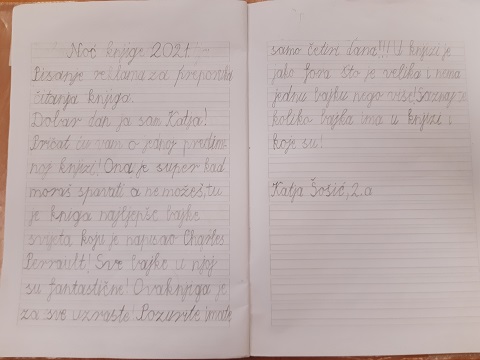 Noć knjige 2021.
Pisanje reklama za preporuku
čitanja knjiga.
Dobar dan ja sam Katja!
Pričat ću vam o jednoj predim
noj knjizi! Ona je super kad
moraš spavati a ne možeš, tu
je knjiga najljepše bajke
svijeta koju je napisao Charles
Perrault! Sve bajke u njoj
su fantastične! Ova knjiga je
za sve uzraste! Pozurite imate
samo četiri dana!!! U knjizi je
jako fora što je velika i nema
jednu bajku nego više! Saznajte
koliko bajka ima u knjizi i
koje su!
Katja Šošić, 2.a